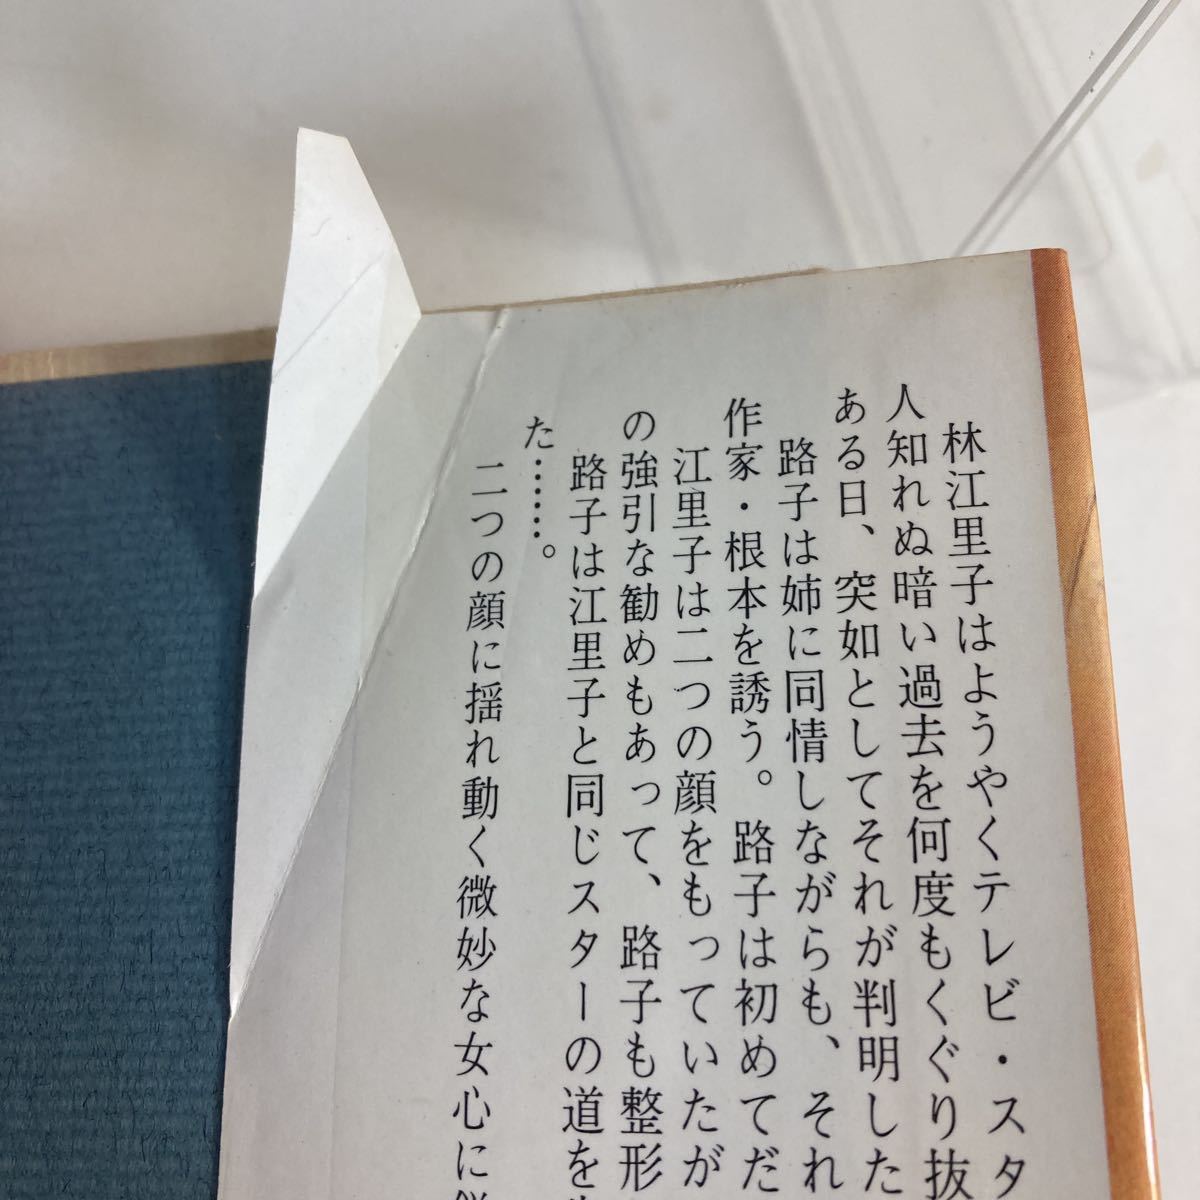 林江里子はようやくテレビ・スタ
人知れぬ暗い過去を何度もくぐり抜
ある日、突如としてそれが判明した
路子は姉に同情しながらも、それ
作家・根本を誘う。路子は初めてだ
江里子は二つの顔をもっていたが
の強引な勧めもあって、路子も整形
路子は江里子と同じスターの道を
た……。
二つの顔に揺れ動く微妙な女心に